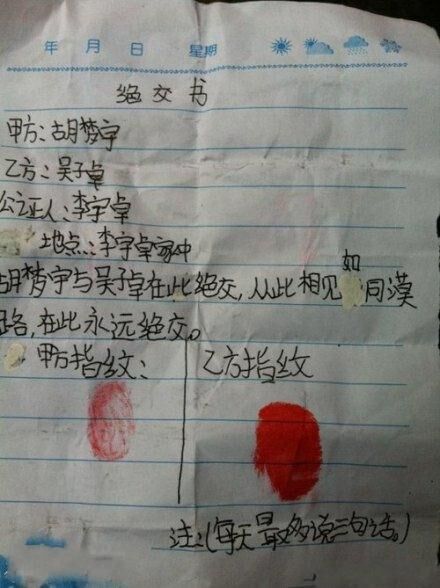 年 月 日 星期
绝交书
甲方:胡梦宇
乙方:吴子卓
公证人:李宇卓
地点:李宇卓家中
胡梦宇与吴子卓在此绝交,从此相见如同漠
路,在此永远绝交。
甲方指纹: 乙方指纹
注:(每天最多说三句话。)